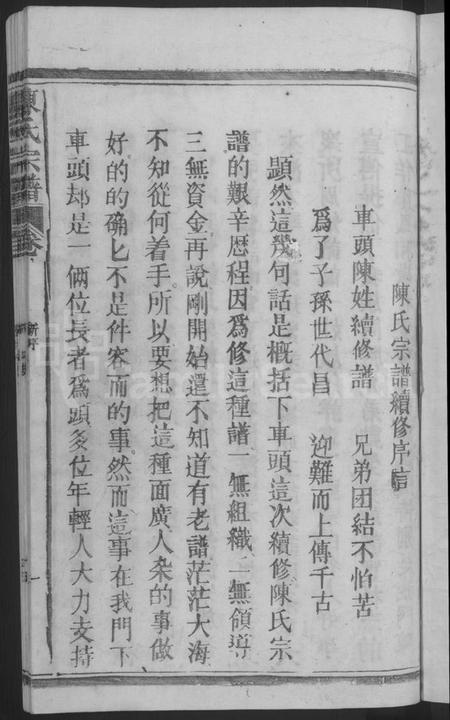 陳氏宗譜續修序言
車頭陳姓續修譜　兄弟团結不怕苦
爲了子孫世代昌　迎難而上傳千古
顯然這幾句話是概括下車頭這次續修陳氏宗
譜的艱辛歷程因爲修這種譜一無組織二無領導
三無資金再說剛開始還不知道有老譜茫茫大海
不知從何着手所以要想把這種面廣人杂的事做
好的的确匕不是件容而的事然而這事在我門下
車頭却是一俩位長者爲頭多位年輕人大力支持
陳氏宗譜